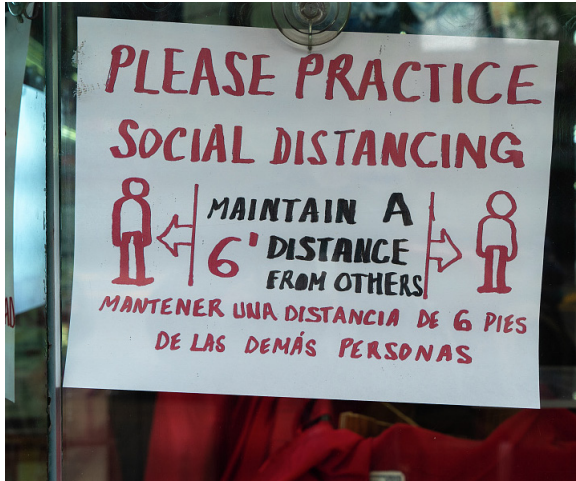 PLEASE PRACTICE
SOCIAL DISTANCING
MAINTAIN A
6' DISTANCE
FROM OTHERS
MANTENER UNA DISTANCIA DE 6 PIES
DE LAS DEMÁS PERSONAS